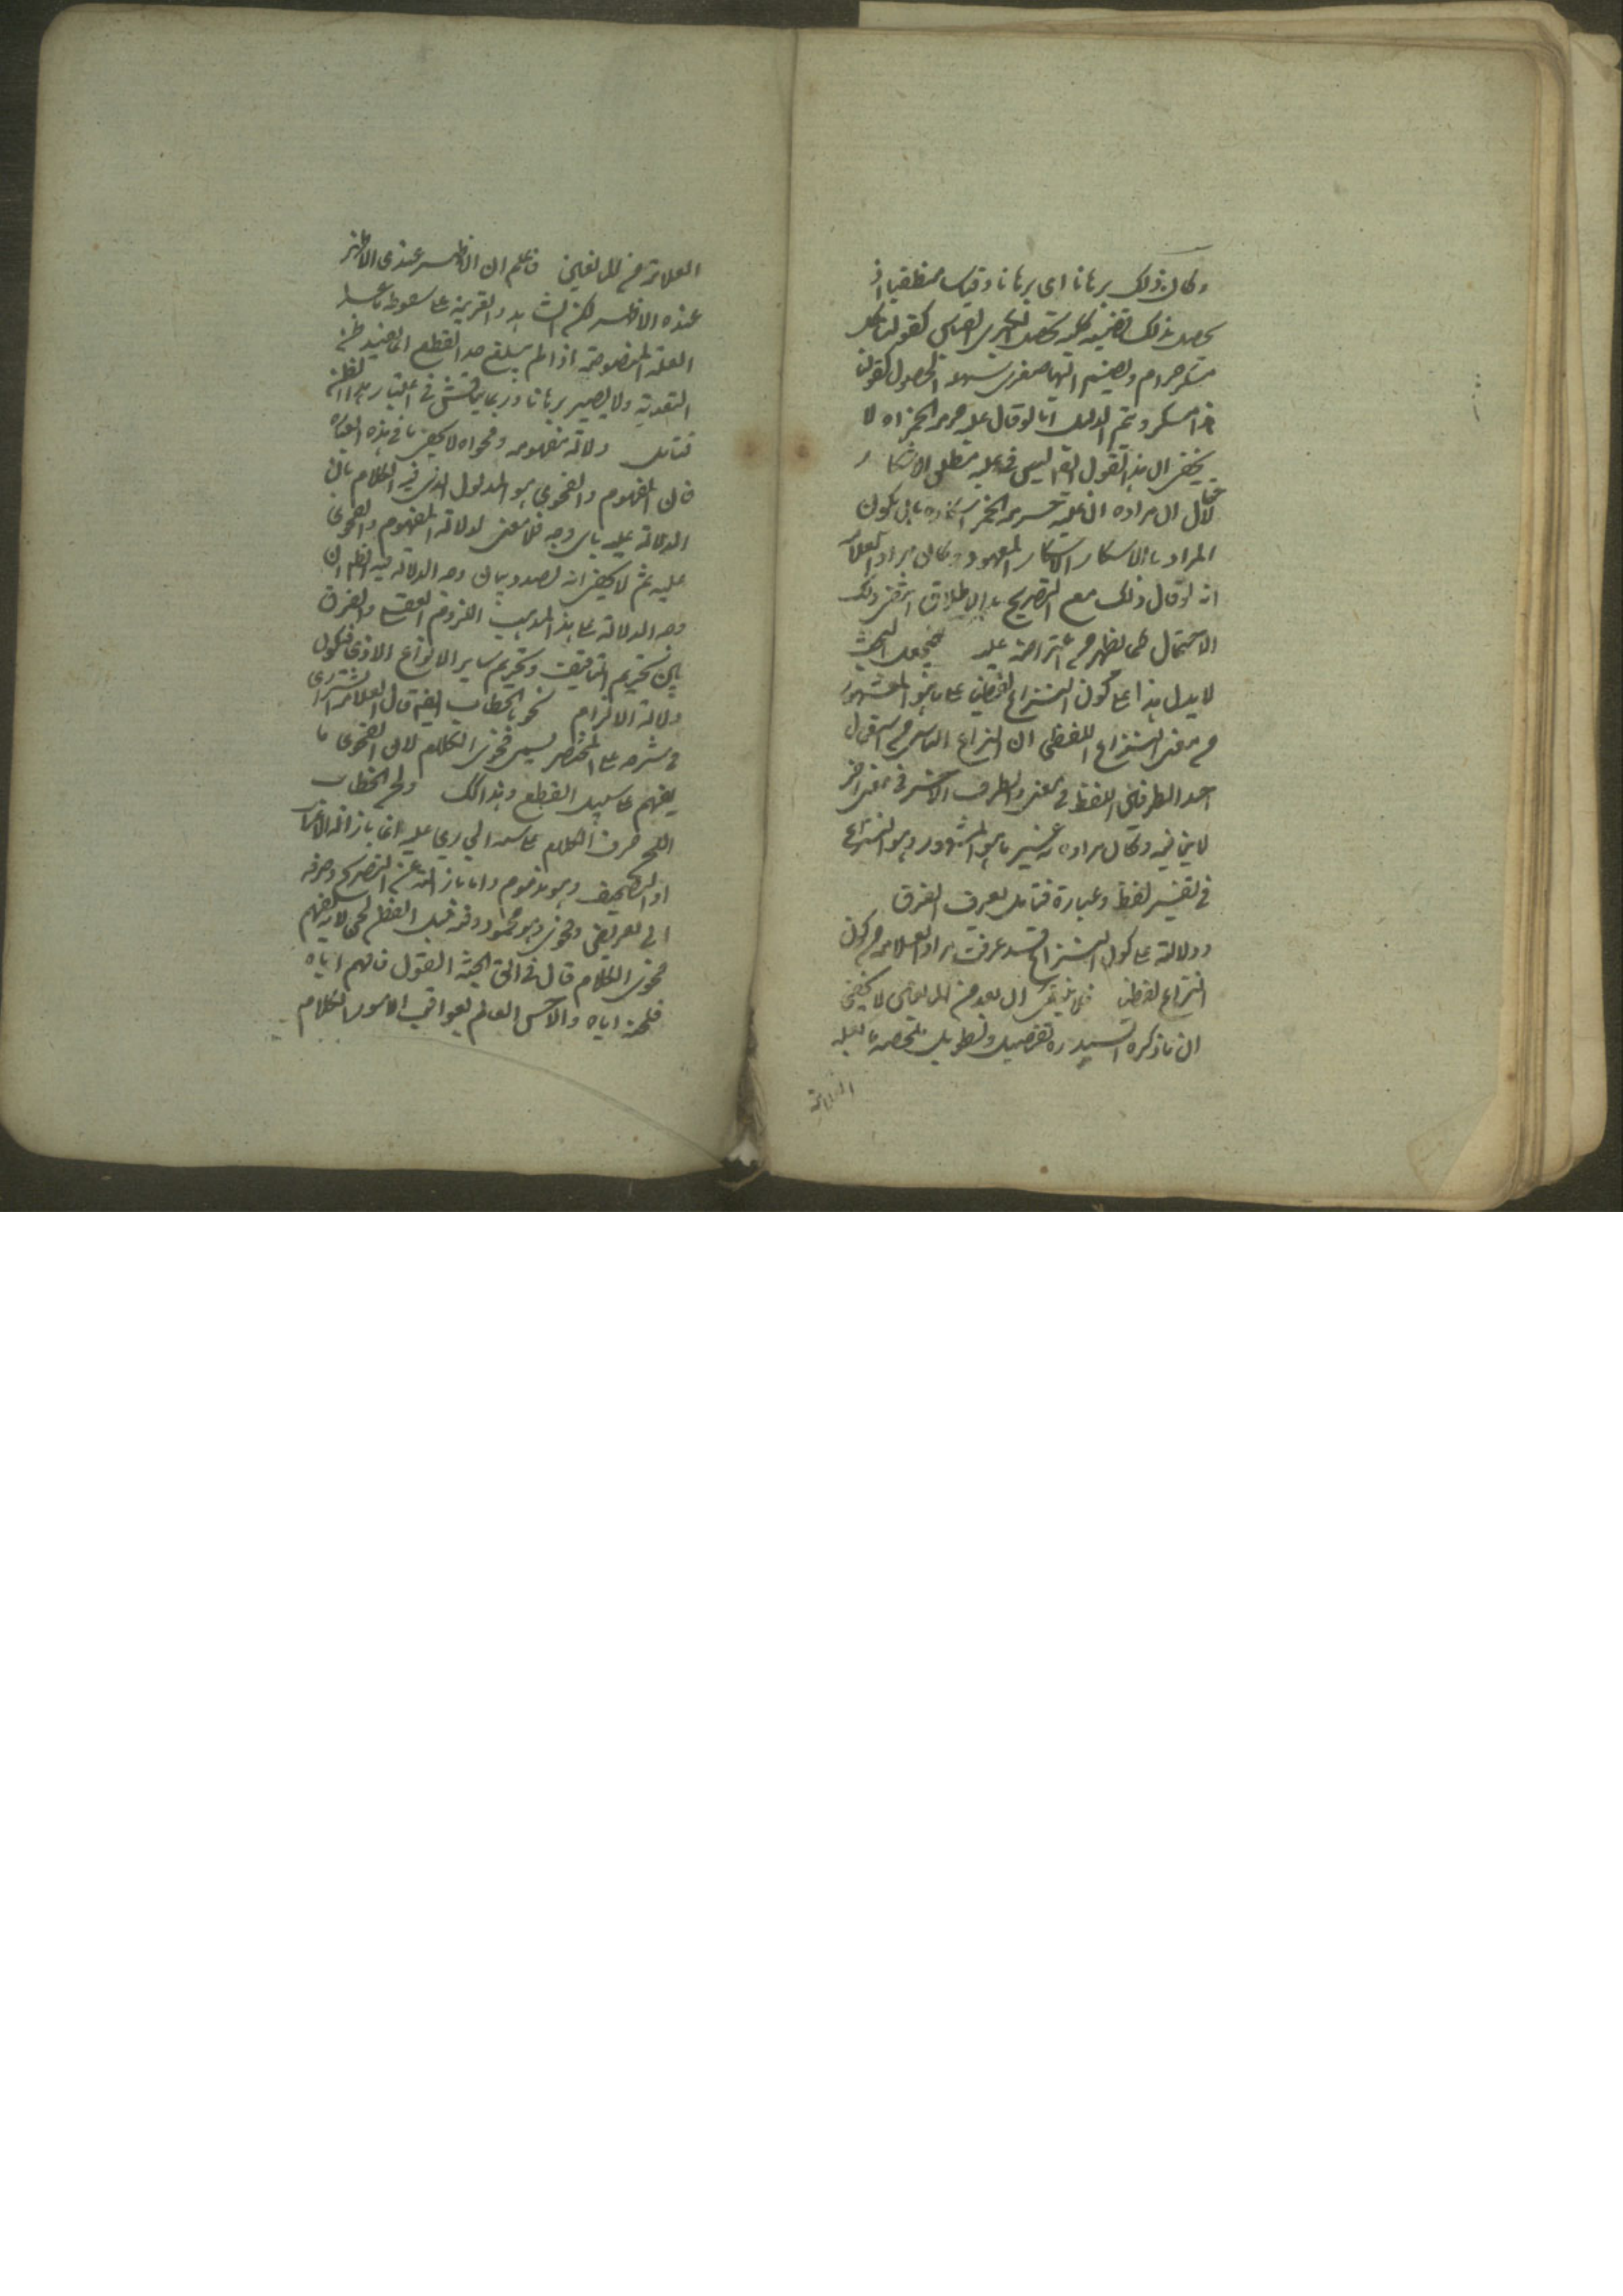 وكان ذلك برهانا اى برهانا وقياسا منطقيا اذ
يحصل بذلك قضية كلية تجعل كبرى القياس كقولنا كل
مسكر حرام ويضم اليها صغرى سهلة الحصول كقولنا
هذا مسكر ويتم الدليل اما لو قال علة حرمة الخمر اه لا
يخفى ان هذا القول ليس فى علية مطلق الاسكار
لاحتمال ان مراده ان علة حرمة الخمر اسكاره بان يكون
المراد بالاسكار الاسكار المعهود وكان مراد العلامة
انه لو قال ذلك مع التصريح بالاطلاق ارتفع ذلك
الاحتمال كما يظهر من اعتراضه عليه فيجعل البحث
لا يدل هذا على كون النزاع لفظيا على ما هو المشهور
من معنى النزاع اللفظى ان النزاع الناس من استعمال
احد الطرفين اللفظ فى معنى والطرف الاخر فى معنى اخر
لا ينافيه وكان مراده غير ما هو المشهور وهو النزاع
فى تفسير لفظ وعبارة فتامل يعرف الفرق
ودلالته على كون النزاع قد عرفت مراد العلامة من كون
النزاع لفظيا فلا ان بعد من المانعين لا يخفى
ان ما ذكره السيد ره تفصيل وتطويل ملخصه ما نقله
العلامة
العلامة من المانعين فاعلم ان الاظهر عندى الاظهر
عنده الاظهر لكن الشاهد والقرينة على سقوط ما عدا
العلة المنصوصة اذا لم يبلغ حد القطع انما يفيد ظن
التعدية ولا يصير برهانا وربما يناقش فى اعتبار هذا الظن
فتامل دلالة مفهومه وفحواه لا يخفى ما فى هذه العبارة
فان المفهوم والفحوى هو المدلول الذى فى الكلام بان
الدلالة عليه باى وجه فلا معنى لدلالة المفهوم والفحوى
عليه ثم لا يخفى انه بصدد بيان وجه الدلالة فيه اظهر ان
وجه الدلالة على هذا المذهب اللزوم العقلى والعرفى
بين تحريم التافيف وتحريم ساير الانواع الاذى فيكون
دلالة الالتزام نحو بالخطاب الخ قال العلامة الشيرازى
فى شرحه على المختصر يسمى فحوى الكلام لان الفحوى ما
يفهم على سبيل القطع وهذا كذلك ولحن الخطاب
اللحن صرف الكلام عن سننه الجارى عليه اما بازالة الاعراب
او التصحيف وهو مذموم واما بازالته عن التصريح وصرفه
الى تعريض وفحوى وهو محمود ومنه قيل للفطن لحن لانه يفهم
فحوى الكلام قال فى الحن الحجة القول فافهم اياه
فلحنه اياه والالحن العالم بعواقب الامور الكلام